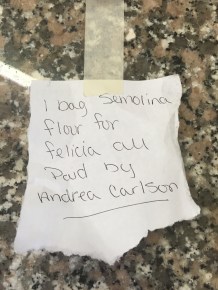 1 bag Semolina
flour for
felicia all
Paid by
Andrea Carlson